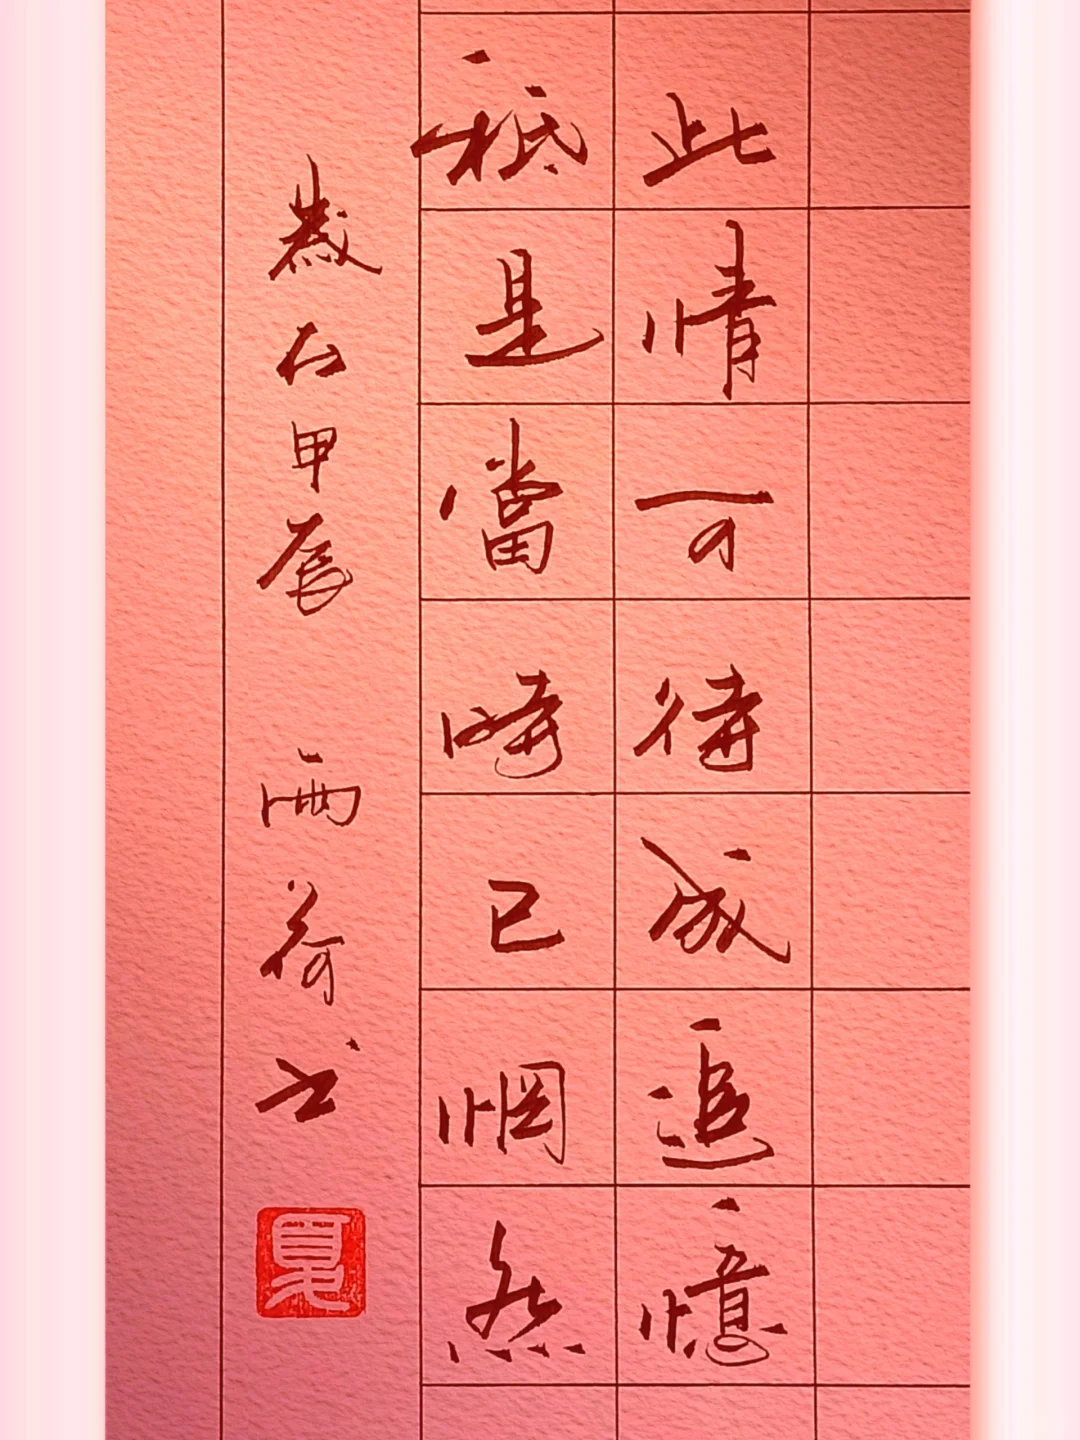 此情可待成追憶
秖是當時已惘然
歲在甲辰 雨荷书
夏